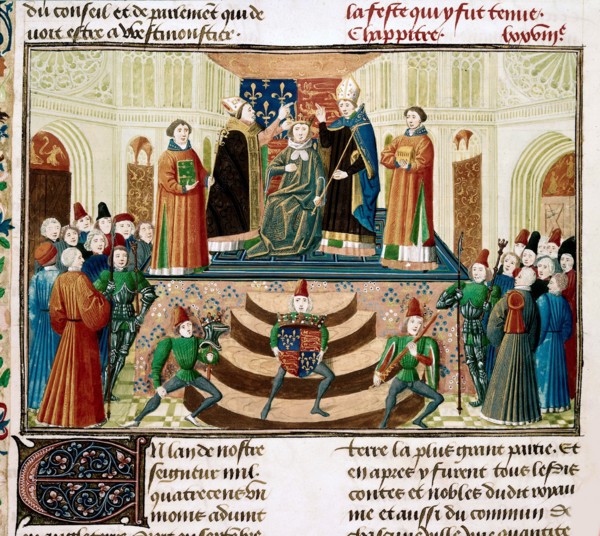 du conseil et de parlement qui de
voit estre a westmonstier.
la feste qui y fut tenue.
Chappitre.
En lan de nostre
seigneur mil
quatrecens vn
moins aduint
en angleterre
terre la plus grant partie. Et
en apres y furent tous les
contes et nobles dudit royau
me et aussi du commun de
chascune ville vne quantite